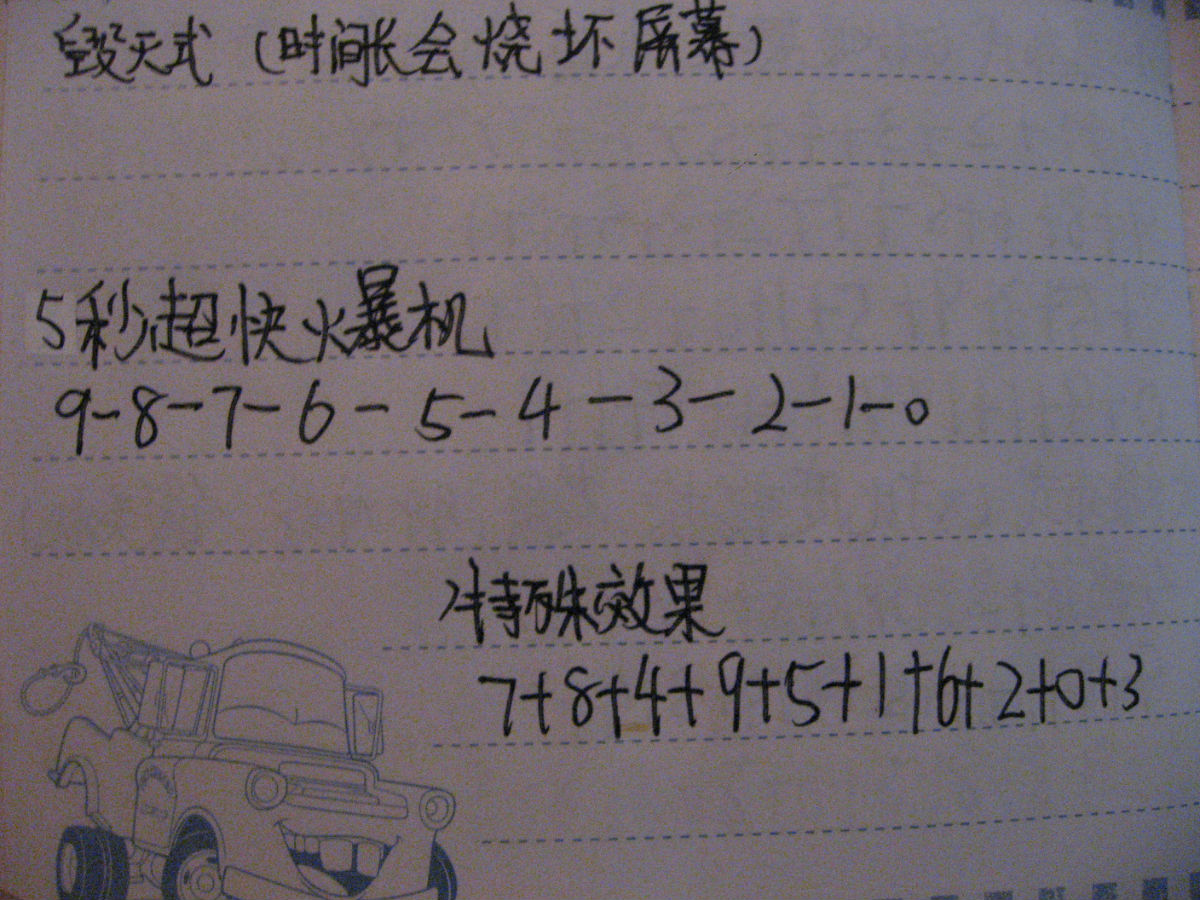 毁天式（时间长会烧坏屏幕）
5秒超快火暴机
9-8-7-6-5-4-3-2-1-0
特殊效果
7+8+4+9+5+1+6+2+0+3